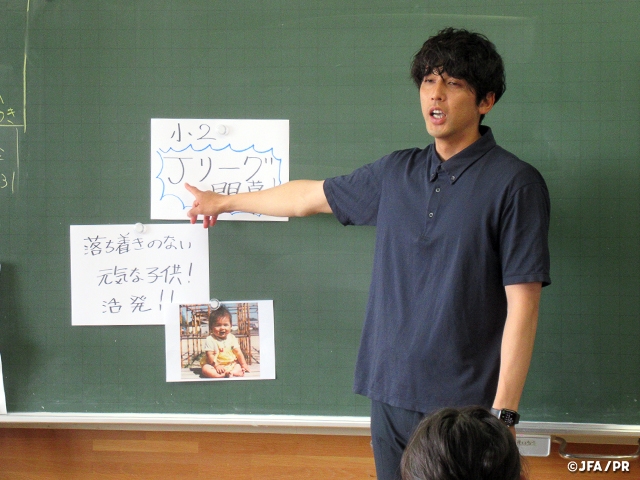 小2
Jリーグ
開幕
落ち着きのない
元気な子供!
活発!!
©JFA/PR